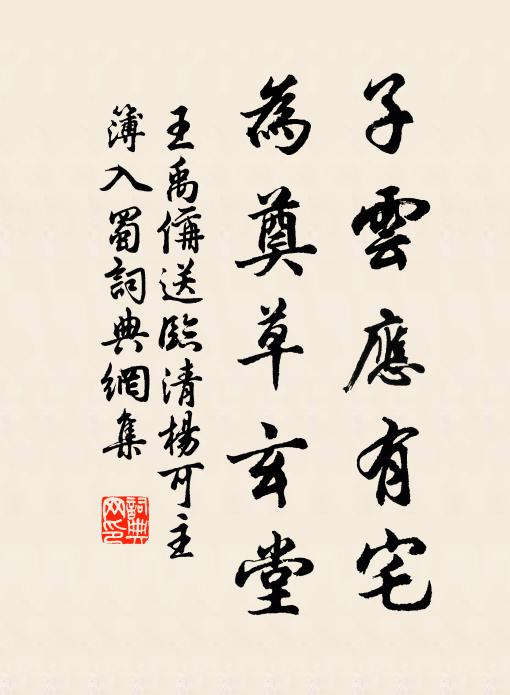 子雲應有宅
為奠草玄堂
王禹偁送臨清楊可主
簿入蜀詞典網集
詞典
网印